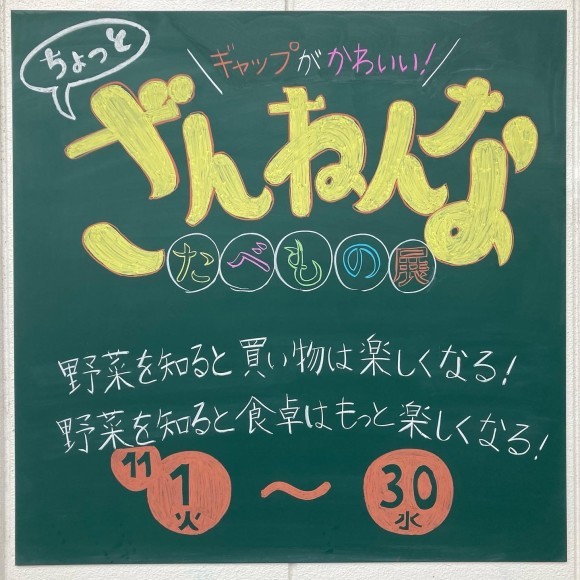 ちょっと
ギャップがかわいい!
ざんねんな
たべもの展
野菜を知ると買い物は楽しくなる!
野菜を知ると食卓はもっと楽しくなる!
11 1火 〜 30水